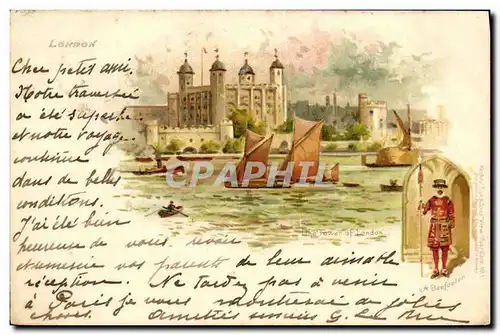 LONDON
Cher petits amis.
Notre traversée
a été superbe
et notre voyage
continue
dans de belles
conditions.
J'ai été bien
heureuse de vous revoir
et remercie vos parents de leur aimable
réception. Ne tardez pas à venir
à Paris je vous montrerai de jolies
choses. Amitiés
The Tower of London
A Beefeater
CPARAMA